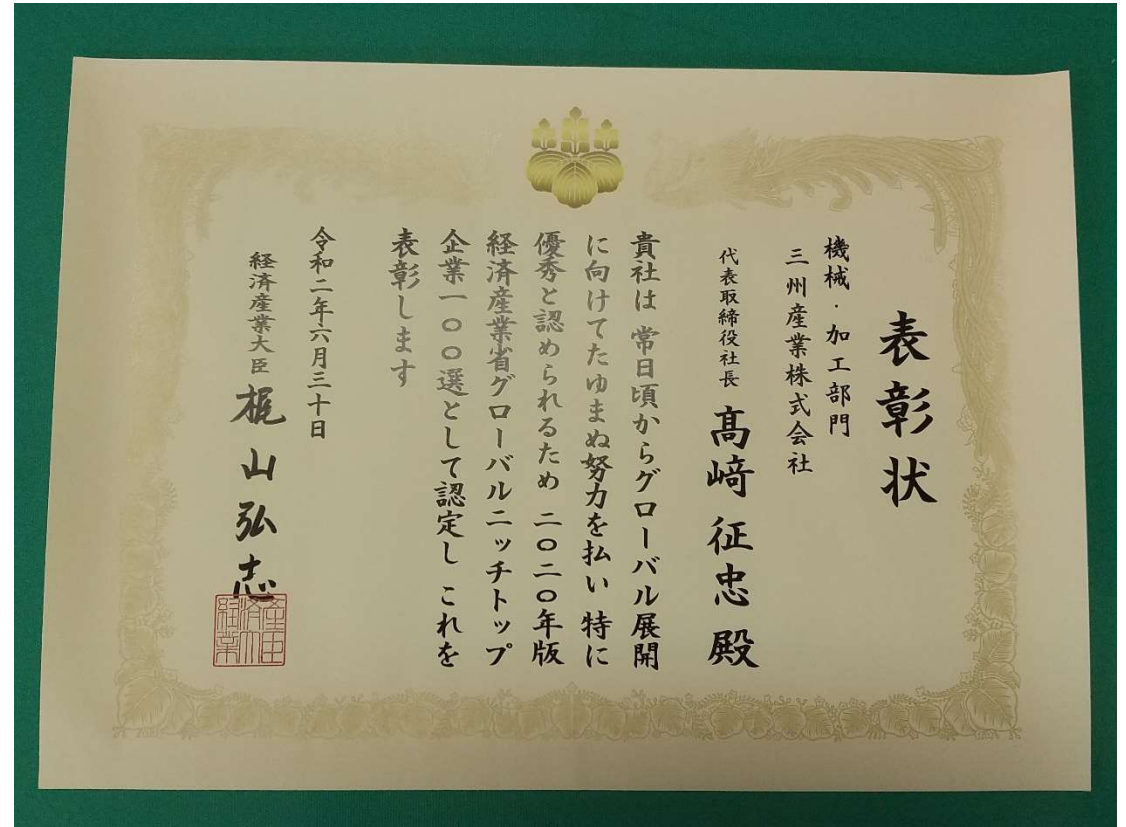 表彰状
機械・加工部門
三州産業株式会社
代表取締役社長 髙﨑 征忠 殿
貴社は 常日頃からグローバル展開
に向けてたゆまぬ努力を払い 特に
優秀と認められるため 二〇二〇年版
経済産業省グローバルニッチトップ
企業一〇〇選として認定し これを
表彰します
令和二年六月三十日
経済産業大臣 梶山弘志